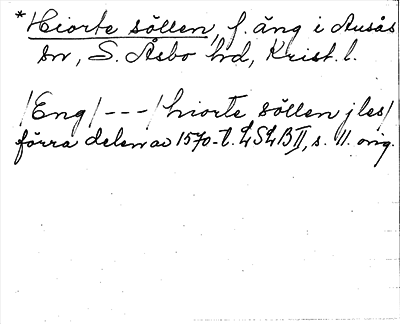 *Hiorte söllen, f. äng i Ausås
sn, S. Åsbo hd, Krist. l.
/Eng/---/hiorte söllen jles/
förra delen av 1570-t. LSLB II, s. 11. orig.